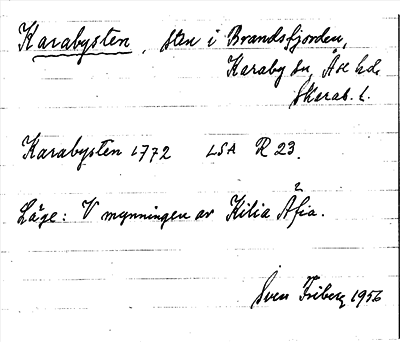 Karabysten, sten i Brandsfjorden,
Karaby sn, Åse hd.
Skarab. l.
Karabysten 1772 LSA R 23.
Läge: V mynningen av Kilia Åfia.
Sven Friberg 1956